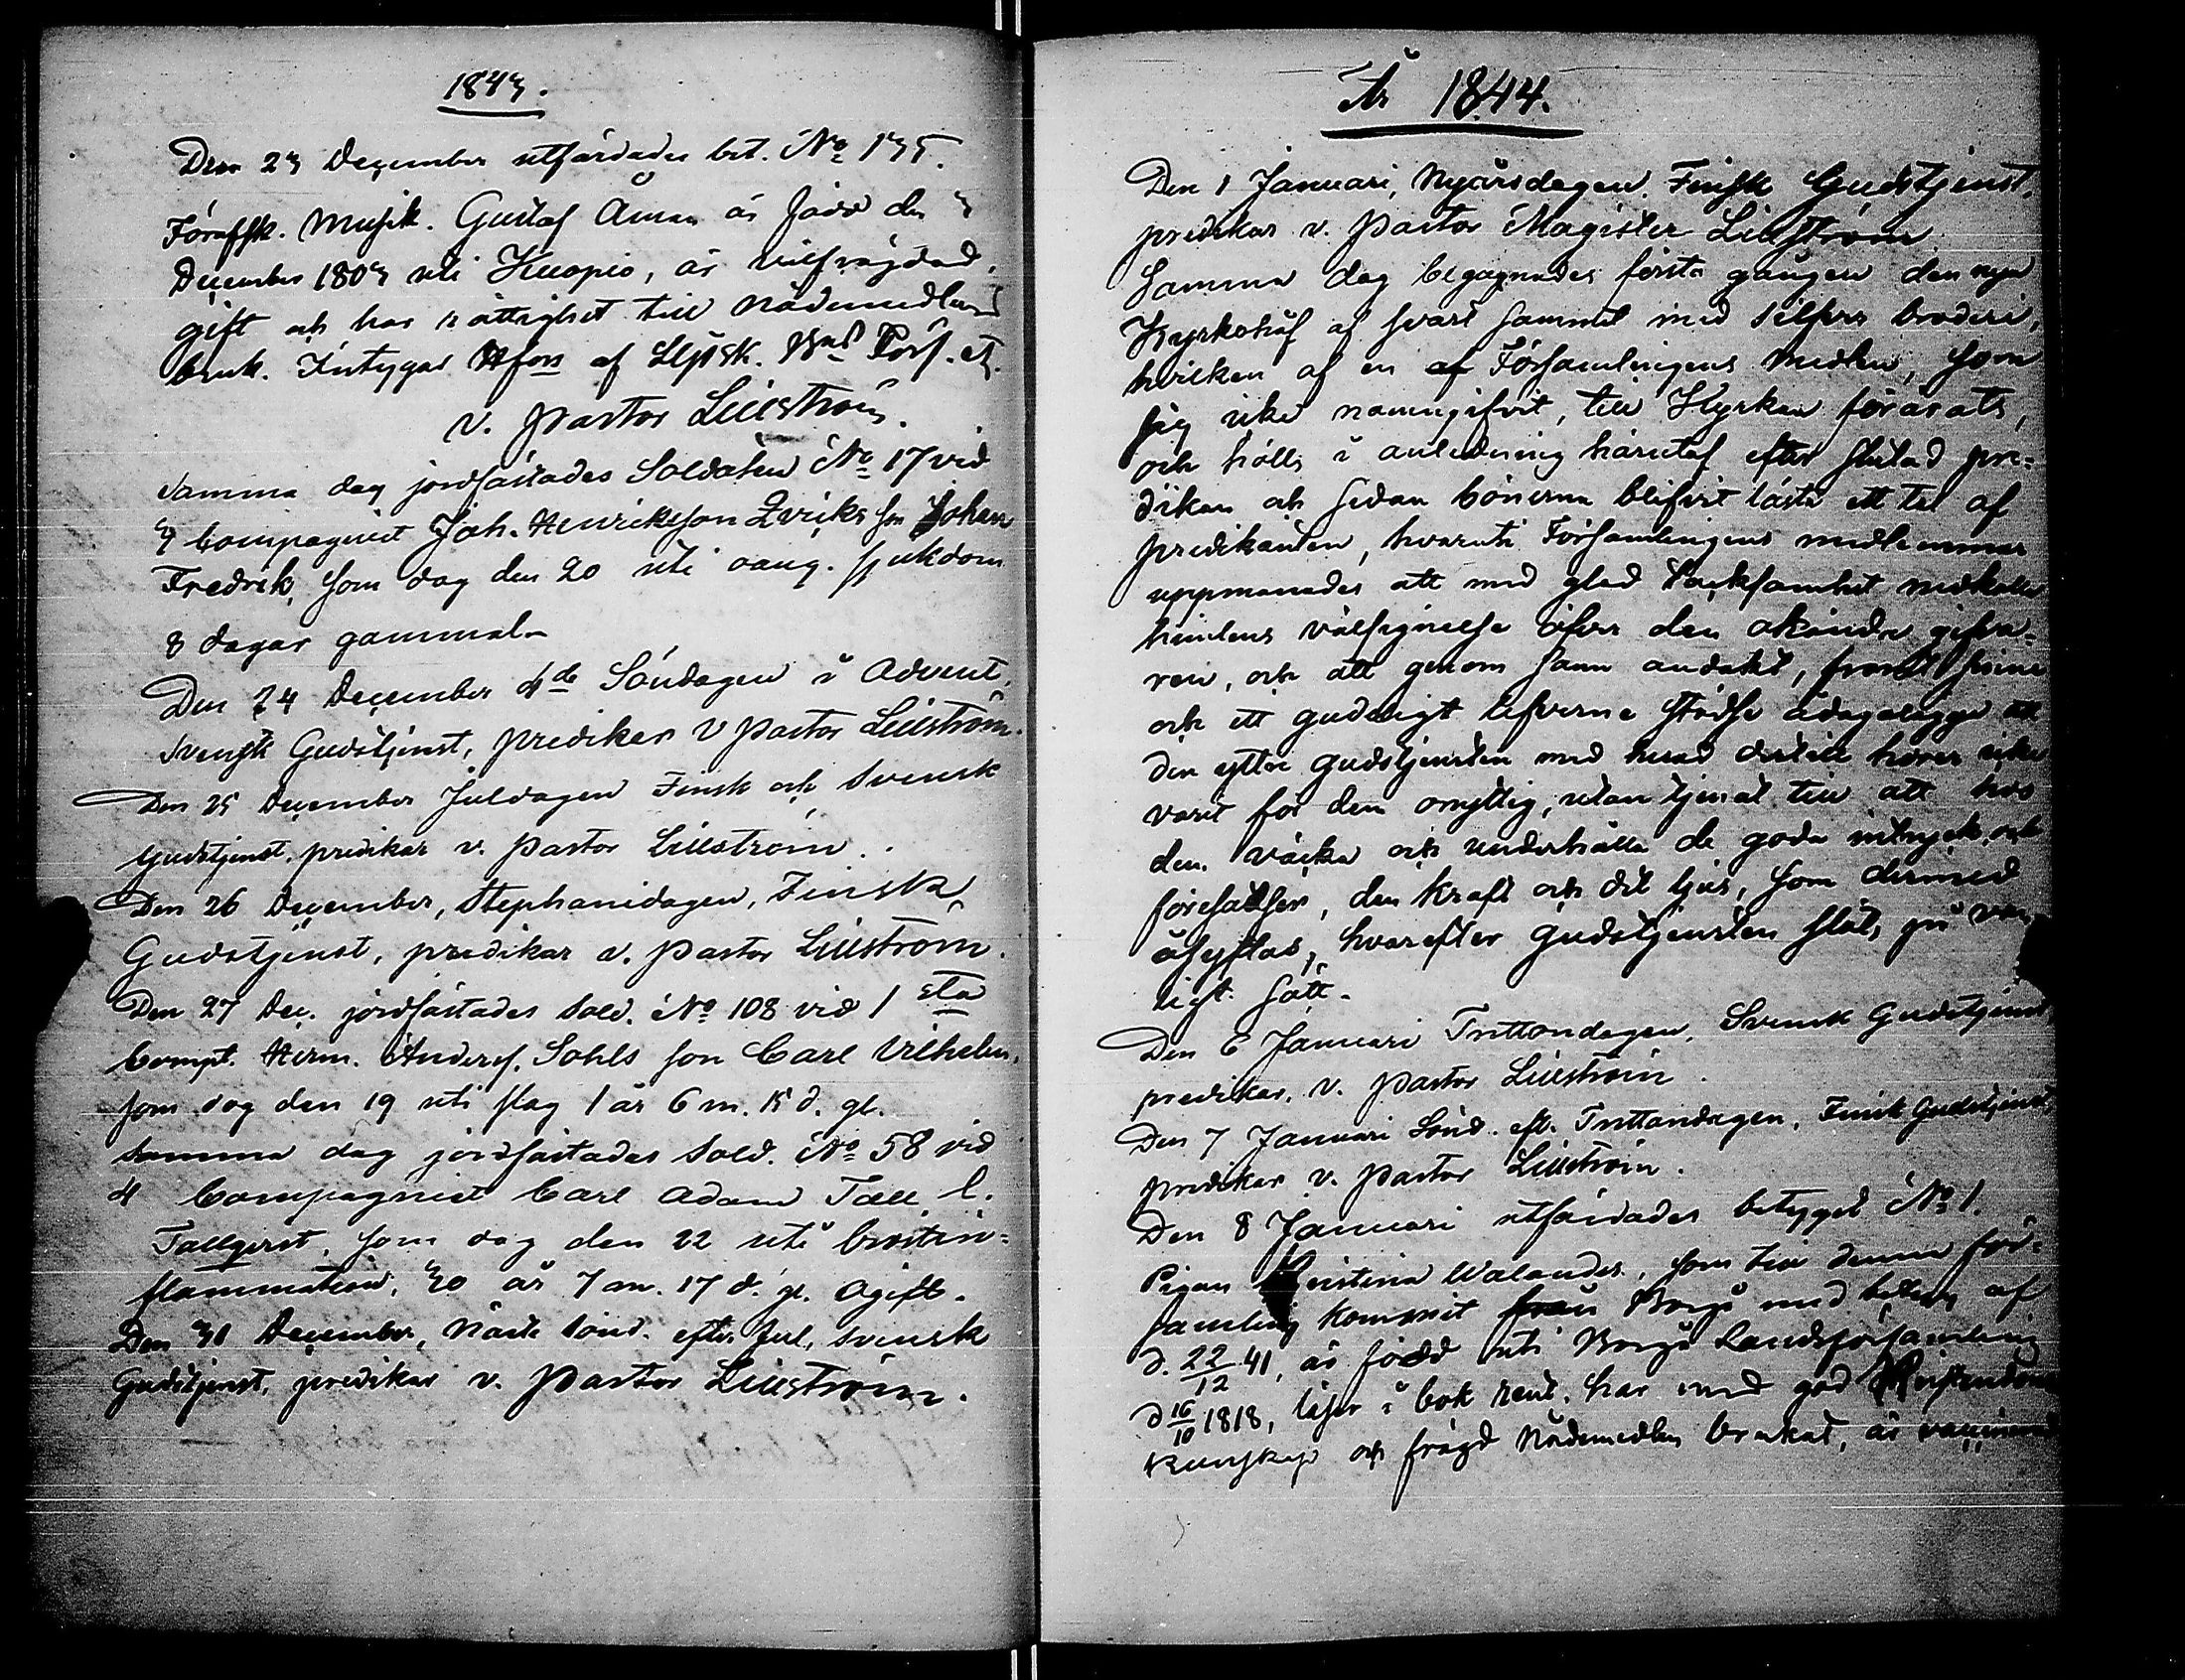 1843.
Den 23 December utfärdades bet. No 135.
Förafsk. Musik. Gustaf Åman är född den 3
December 1803 uti Kuopio, är välfrägdad,
gift och har rättighet till nådemedlens
bruk. Intygas Hfors af Lifsk. Bat. Förs. et.
v. Pastor Lillström.
Samma dag jordfästades Soldaten No 17 vid
3 Compagniet Joh. Henriksson Qvicks son Johan
Fredrik, som dog den 20 uti oang. sjukdom
8 dagar gammal.
Den 24 December 4de Söndagen i Advent,
Svensk Gudstjenst, predikar V Pastor Lillström.
Den 25 December Juldagen Finsk och Svensk
Gudstjenst, predikar v. Pastor Lillström.
Den 26 December, Stephanidagen, Finsk
Gudstjenst, predikar v. Pastor Lillström.
Den 27 Dec. jordfästades Sold. No 108 vid 1 sta
Compt. Herm. Andersf. Sohls son Carl Vilhelm,
som dog den 19 uti slag 1 år 6 m. 15 d. gl.
Samma dag jordfästades Sold. No 58 vid
4 Compagniet Carl Adam Tall l.
Tallqvist, som dog den 22 uti bröstin=
flammation, 30 år 7 m. 17 d. gl. Ogift.
Den 31 December, Näste sönd. efter Jul, Svensk
Gudstjenst, predikar v. Pastor Lillström.
År 1844.
Den 1 Januari, Nyårsdagen, Finsk Gudstjenst,
predikar v. Pastor Magister Lillström.
Samma dag begagnades första gången den nya
Kyrkohåf af svart sammet med silfver broderi,
hvilken af en af Församlingens medlem, som
sig icke namngifvit, till Kyrkan förärats,
och hölls i anledning häraf efter slutad pre=
dikan och sedan bönerna blifvit lästa ett tal af
predikanten, hvaruti Församlingens medlemmar
uppmanades att med glad tacksamhet nedkalla
himlens välsignelse öfver den okände gifva=
ren, och att genom sann andakt, fromt sinne
och ett gudeligt lefverne städse ådagalägga att
den yttre gudstjensten med hvad dertill hörer icke
varit för den onyttig, utan tjenat till att hos
den väcka och underhålla de goda intryck och
föresatser, den kraft och det ljus, som dermed
åsyftas, hvarefter Gudstjensten slöts på van
ligt sätt.
Den 6 Januari Trettondagen, Svensk Gudstjenst
predikar v. Pastor Lillström.
Den 7 Januari Sönd. eft. Trettondagen, Finsk Gudstjenst,
predikar v. Pastor Lillström.
Den 8 Januari utfärdades betyget No 1.
Pigan Kristina Walander, som till denna för=
samling kommit från Borgå med betyg af
d. 22/12 41, är född uti Borgå Landsförsamling
d 16/10 1818, läser i bok rent, har med god Kristendoms
kunskap och frägd Nådemedlen brukat, är vaccinerad